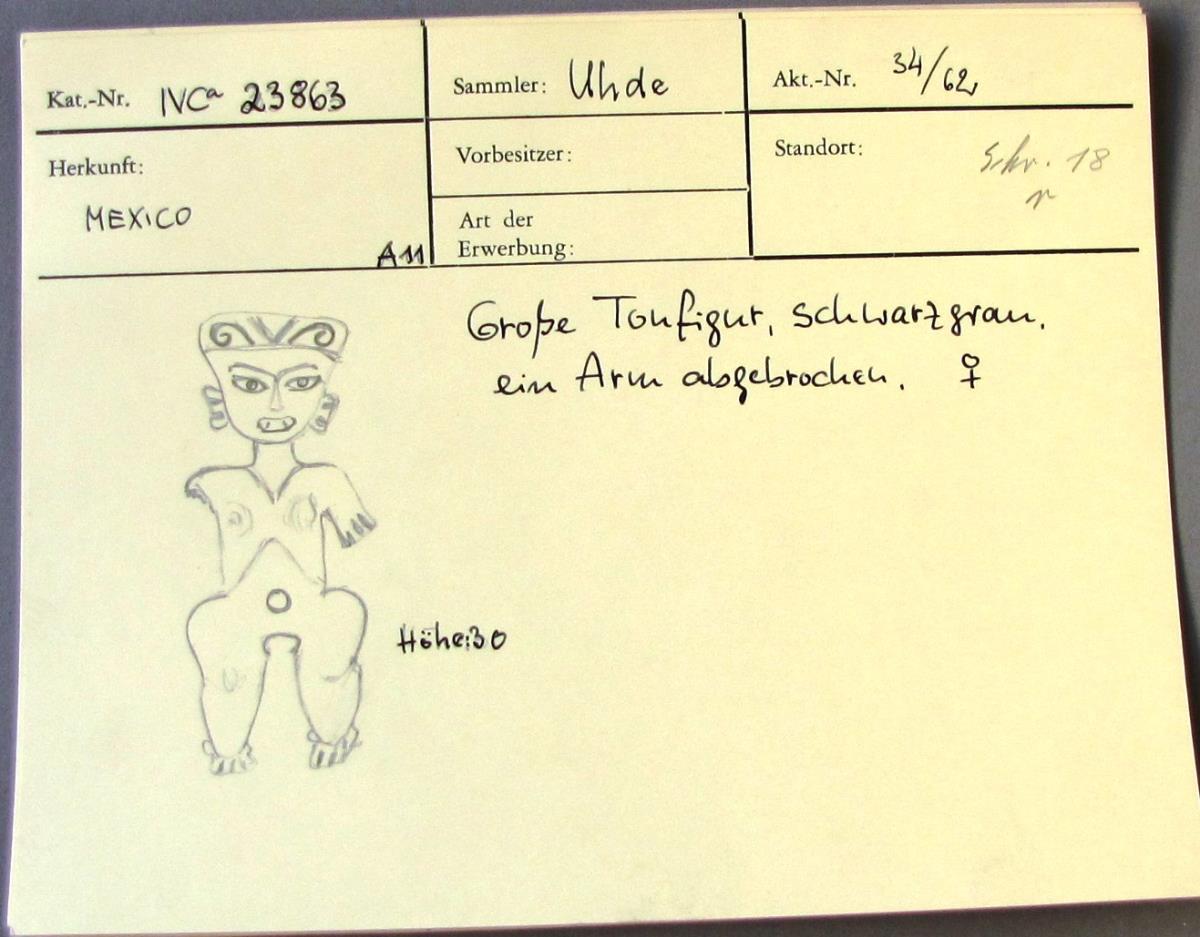 Kat.-Nr. IVCa 23863
Sammler: Uhde
Akt.-Nr. 34/62
Herkunft:
MEXICO
A11
Vorbesitzer:
Art der
Erwerbung:
Standort:
Schr. 18
Große Tonfigur, schwarzgrau,
ein Arm abgebrochen. ♀
Höhe:30